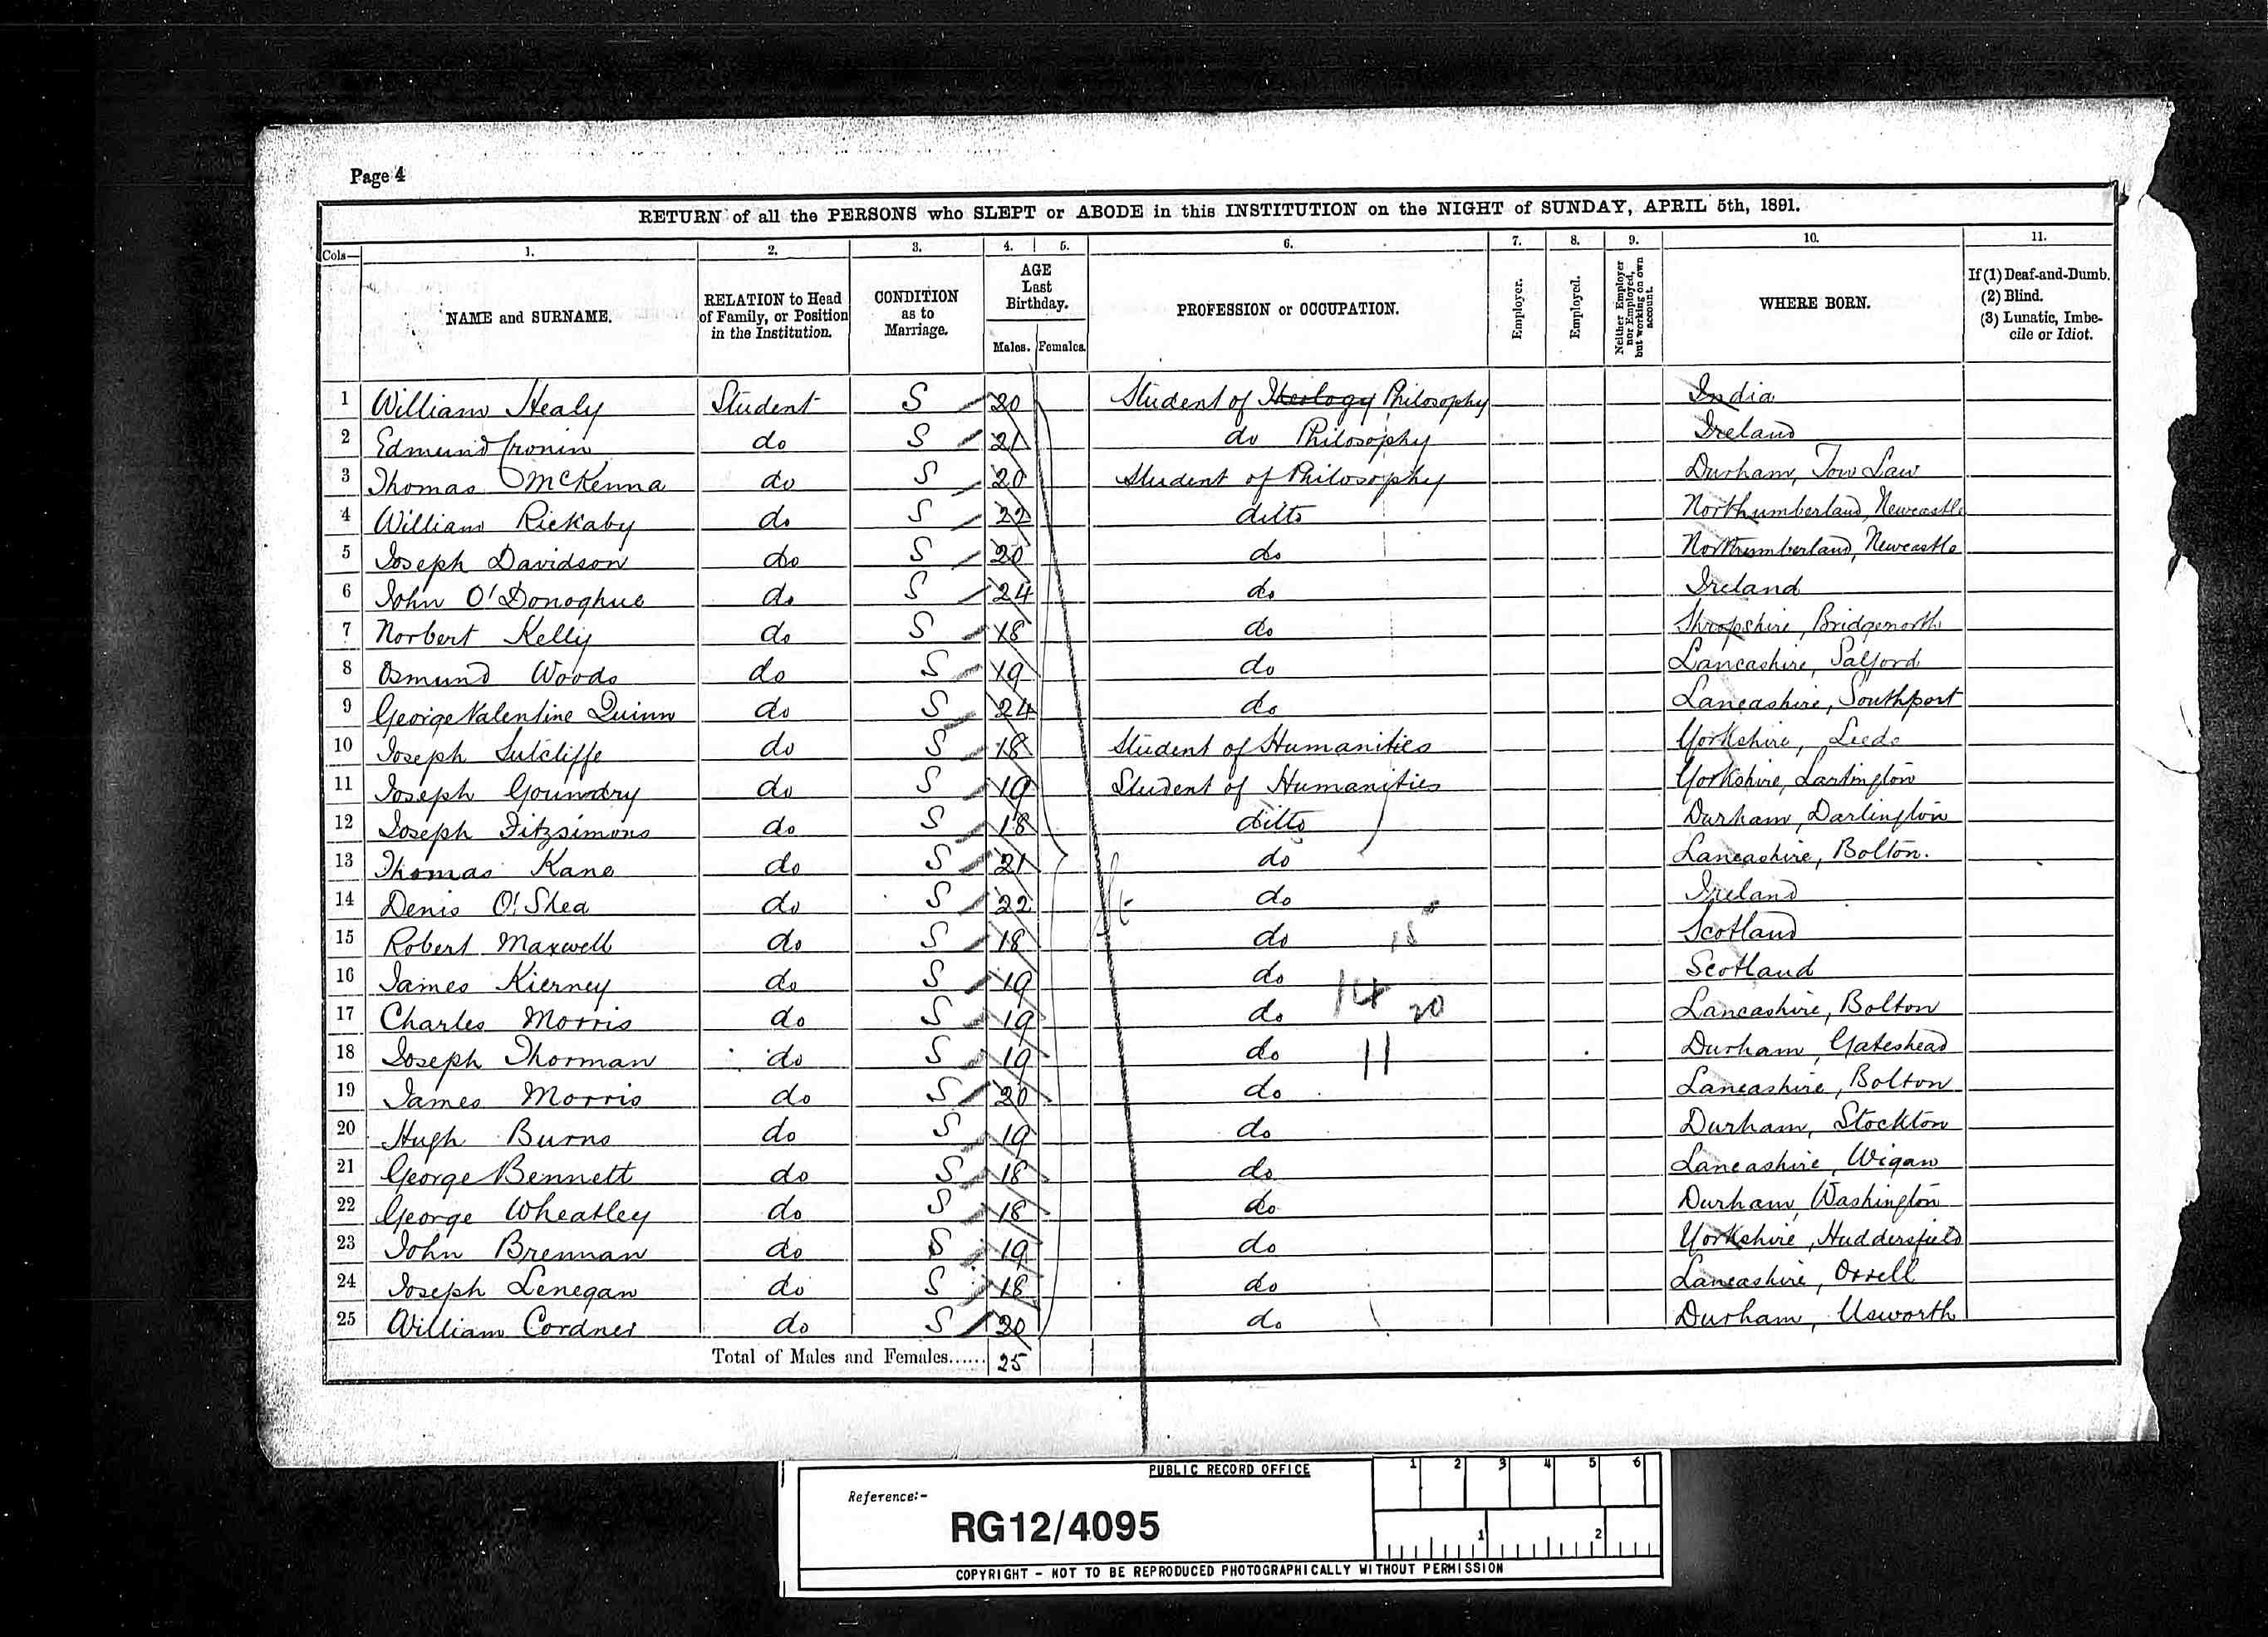 Page 4
RETURN of all the PERSONS who SLEPT or ABODE in this INSTITUTION on the NIGHT of SUNDAY, APRIL 5th, 1891.
Cols— 1. 2. 3. 4. 5. 6. 7. 8. 9. 10. 11.
NAME and SURNAME. RELATION to Head of Family, or Position in the Institution. CONDITION as to Marriage. AGE Last Birthday. Males. Females. PROFESSION or OCCUPATION. Employer. Employed. Neither Employer nor Employed, but working on own account. WHERE BORN. If (1) Deaf-and-Dumb. (2) Blind. (3) Lunatic, Imbecile or Idiot.
1 William Healy Student S 20 Student of Theology Philosophy India
2 Edmund Cronin do S 21 do Philosophy Ireland
3 Thomas McKenna do S 20 Student of Philosophy Durham, Tow Law
4 William Rickaby do S 22 ditto Northumberland, Newcastle
5 Joseph Davidson do S 20 do Northumberland, Newcastle
6 John O'Donoghue do S 24 do Ireland
7 Norbert Kelly do S 18 do Shropshire, Bridgenorth
8 Osmund Woods do S 19 do Lancashire, Salford
9 George Valentine Quinn do S 24 do Lancashire, Southport
10 Joseph Sutcliffe do S 18 Student of Humanities Yorkshire, Leeds
11 Joseph Goundry do S 19 Student of Humanities Yorkshire, Lartington
12 Joseph Fitzsimons do S 18 ditto Durham, Darlington
13 Thomas Kane do S 21 do Lancashire, Bolton.
14 Denis O'Shea do S 22 do Ireland
15 Robert Maxwell do S 18 do 18 Scotland
16 James Kierney do S 19 do 14 Scotland
17 Charles Morris do S 19 do 20 Lancashire, Bolton
18 Joseph Thorman do S 19 do 11 Durham, Gateshead
19 James Morris do S 20 do Lancashire, Bolton
20 Hugh Burns do S 19 do Durham, Stockton
21 George Bennett do S 18 do Lancashire, Wigan
22 George Wheatley do S 18 do Durham, Washington
23 John Brennan do S 19 do Yorkshire, Huddersfield
24 Joseph Lenegan do S 18 do Lancashire, Orrell
25 William Cordner do S 20 do Durham, Usworth
Total of Males and Females...... 25
PUBLIC RECORD OFFICE
1 2 3 4 5 6
Reference:-
RG12/4095
1 2
COPYRIGHT - NOT TO BE REPRODUCED PHOTOGRAPHICALLY WITHOUT PERMISSION